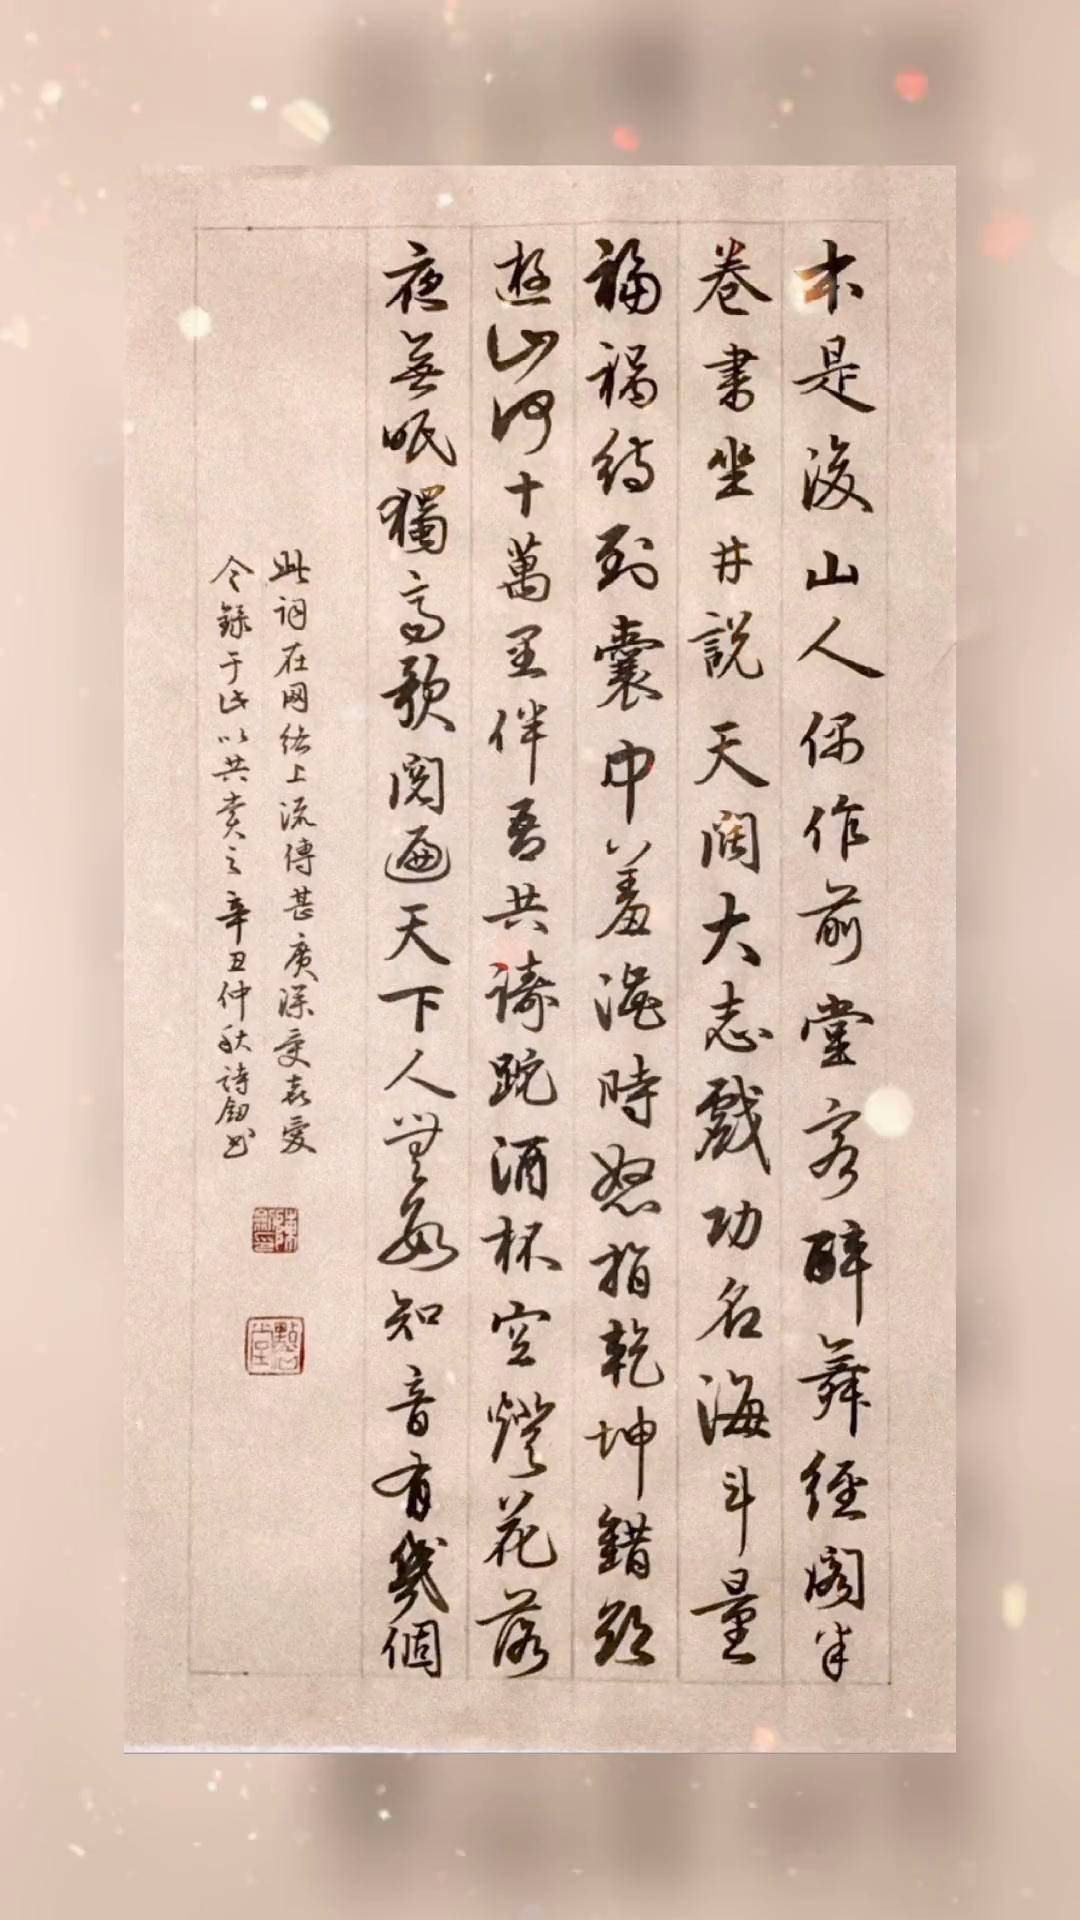 本是後山人偶作前堂客醉舞經閣半
卷書坐井說天闊大志戲功名海斗量
福禍待到囊中羞澀時怒指乾坤錯欲
遊山河十萬里伴吾共跎酒杯空燈花落
夜無眠獨高歌閱遍天下人無數知音有幾個
此詞在网络上流傳甚廣深受喜愛
今錄于此以共賞之辛丑仲秋詩書